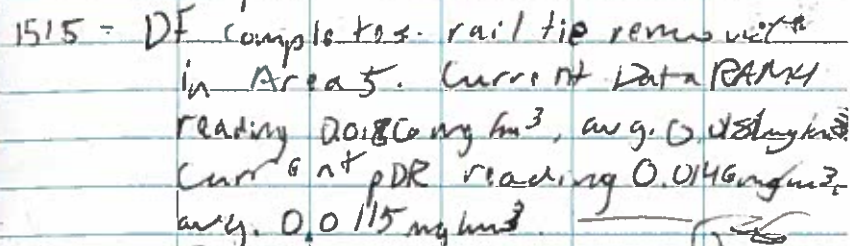 1515 - DF completes rail tie removal
in Area 5. Current DataRAM4
reading 0.0186 mg/m³, avg. mg/m³
Current pDR reading 0.0146 mg/m³,
avg. 0.0115 mg/m³